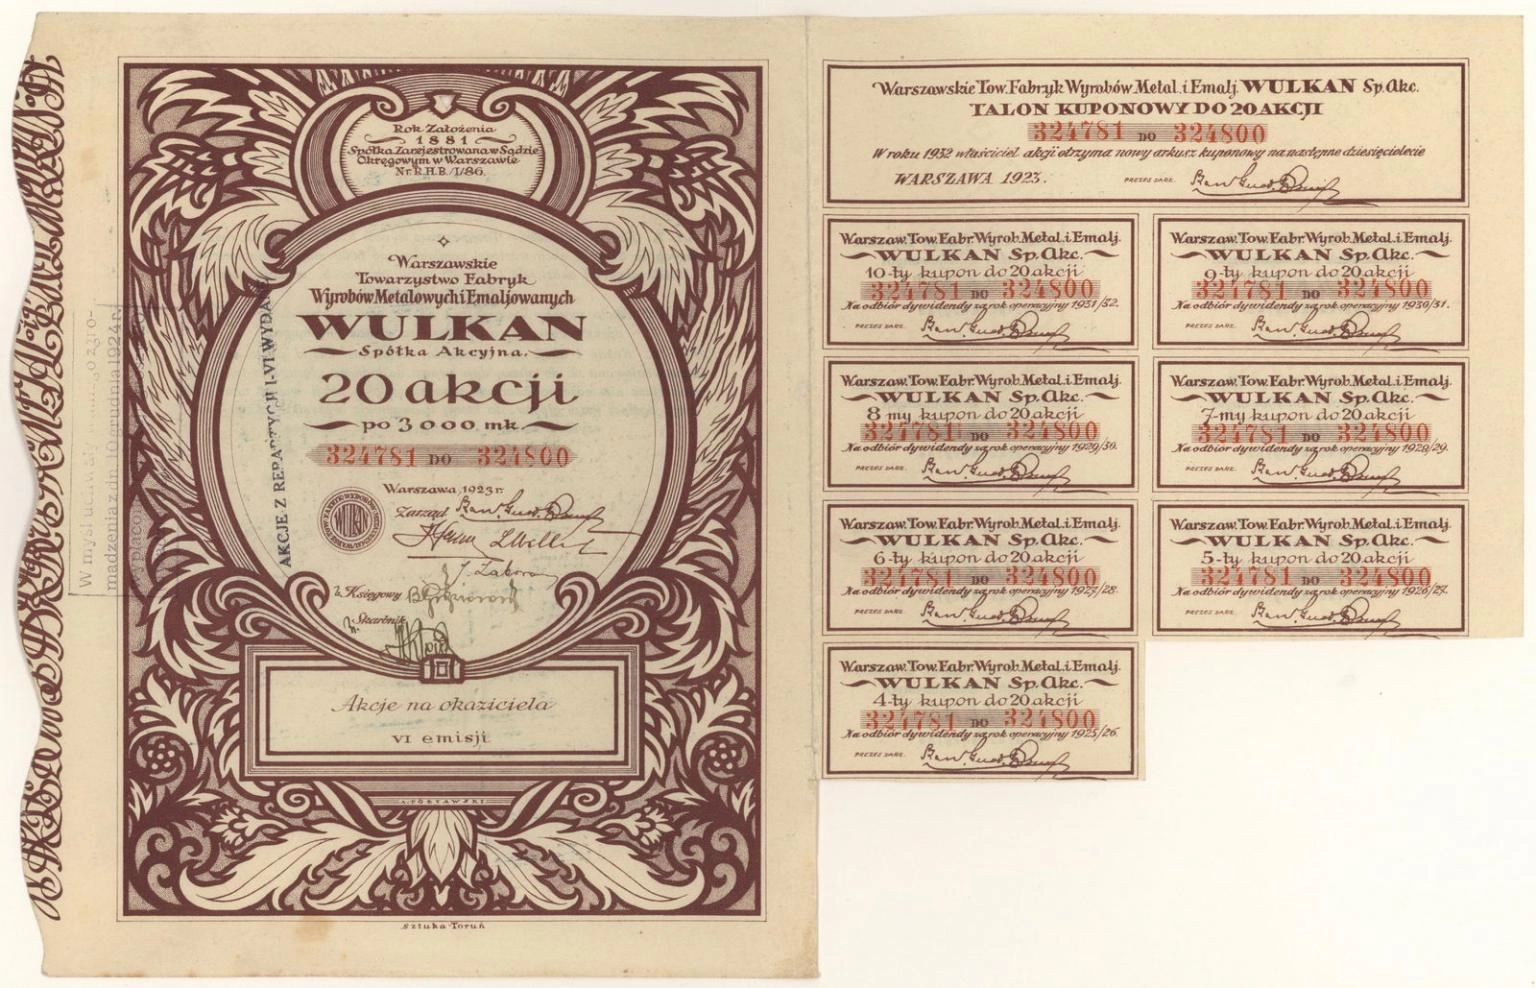 Rok Założenia
1881
Spółka Zarejestrowana w Sądzie
Okręgowym w Warszawie
Nr. R.H.B./I/86.
Warszawskie
Towarzystwo Fabryk
Wyrobów Metalowych i Emaljowanych
WULKAN
Spółka Akcyjna.
20 akcji
po 3000 mk.
324781 DO 324800
Warszawa, 1923 r.
Zarząd
Księgowy
Skarbnik
Akcje na okaziciela
VI emisji
Sztuka-Toruń
AKCJE Z REPARTYCJI I-VI WYDANE
W myśl
madzenia z dn. 10 grudnia 1924 r.
Warszawskie Tow. Fabryk Wyrobów Metal. i Emalj. WULKAN Sp. Akc.
TALON KUPONOWY DO 20 AKCJI
324781 DO 324800
W roku 1932 właściciel akcji otrzyma nowy arkusz kuponowy na następne dziesięciolecie
WARSZAWA 1923. PREZES ZARZ.
Warszaw. Tow. Fabr. Wyrob. Metal. i Emalj.
WULKAN Sp. Akc.
10-ty kupon do 20 akcji
324781 DO 324800
Na odbiór dywidendy za rok operacyjny 1931/32.
PREZES ZARZ.
Warszaw. Tow. Fabr. Wyrob. Metal. i Emalj.
WULKAN Sp. Akc.
9-ty kupon do 20 akcji
324781 DO 324800
Na odbiór dywidendy za rok operacyjny 1930/31.
PREZES ZARZ.
Warszaw. Tow. Fabr. Wyrob. Metal. i Emalj.
WULKAN Sp. Akc.
8 my kupon do 20 akcji
324781 DO 324800
Na odbiór dywidendy za rok operacyjny 1929/30.
PREZES ZARZ.
Warszaw. Tow. Fabr. Wyrob. Metal. i Emalj.
WULKAN Sp. Akc.
7-my kupon do 20 akcji
324781 DO 324800
Na odbiór dywidendy za rok operacyjny 1928/29.
PREZES ZARZ.
Warszaw. Tow. Fabr. Wyrob. Metal. i Emalj.
WULKAN Sp. Akc.
6-ty kupon do 20 akcji
324781 DO 324800
Na odbiór dywidendy za rok operacyjny 1927/28.
PREZES ZARZ.
Warszaw. Tow. Fabr. Wyrob. Metal. i Emalj.
WULKAN Sp. Akc.
5-ty kupon do 20 akcji
324781 DO 324800
Na odbiór dywidendy za rok operacyjny 1926/27.
PREZES ZARZ.
Warszaw. Tow. Fabr. Wyrob. Metal. i Emalj.
WULKAN Sp. Akc.
4-ty kupon do 20 akcji
324781 DO 324800
Na odbiór dywidendy za rok operacyjny 1925/26.
PREZES ZARZ.